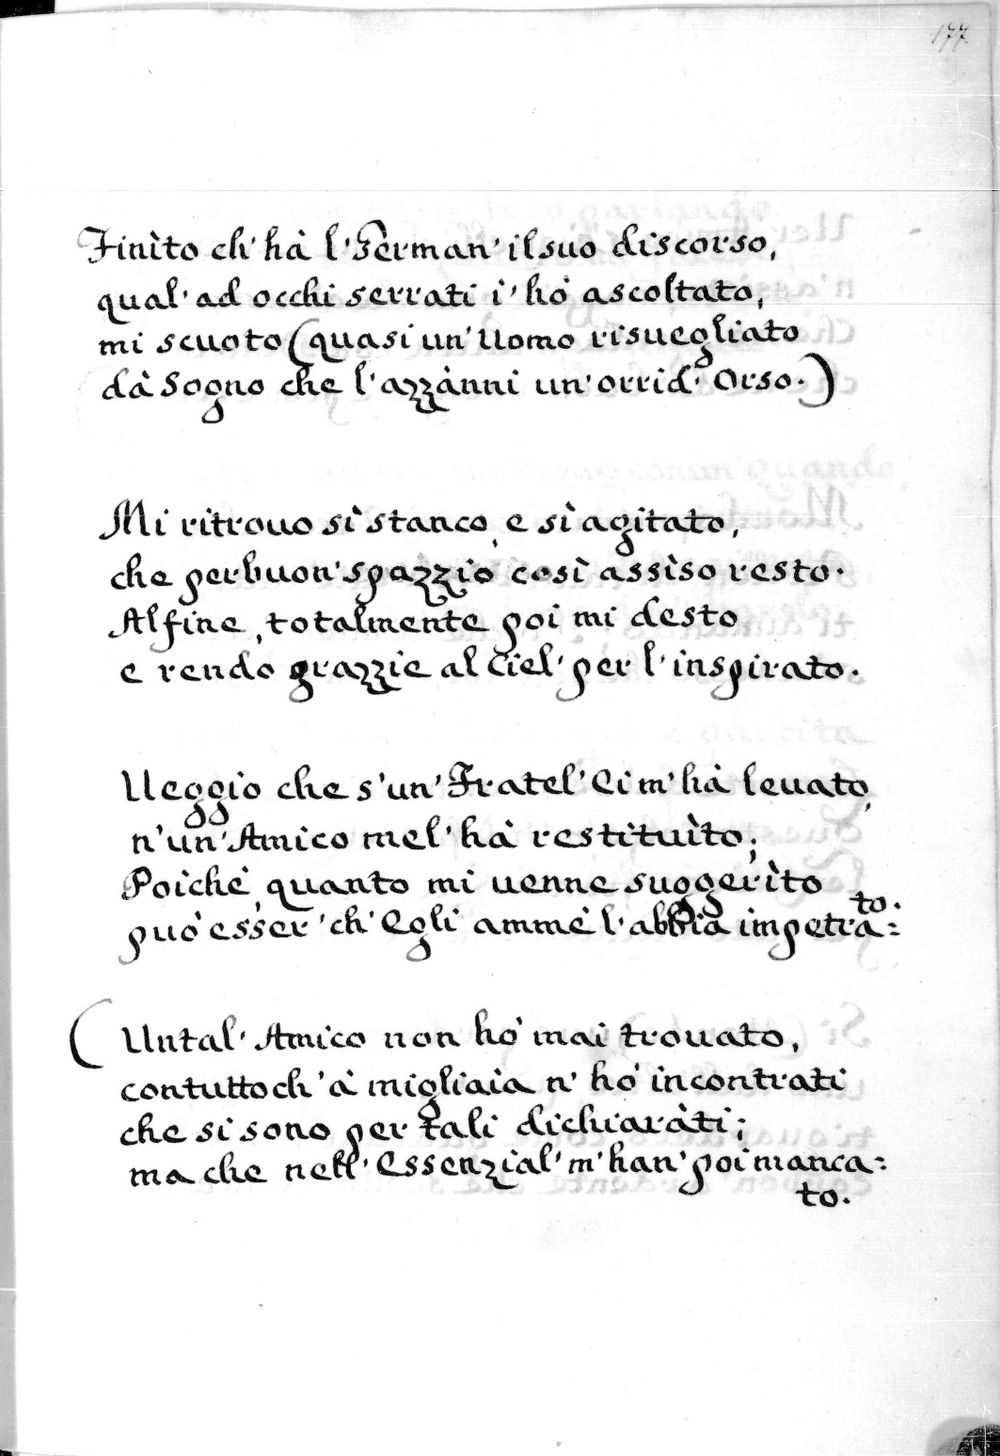 177
Finìto ch' hà l' German' il suo discorso,
qual' ad occhi serrati i' hò ascoltato,
mi scuoto (quasi un' Uomo risuegliato
dà Sogno che l' azzànni un' orrid' Orso.)
Mi ritrouo sì stanco, e sì agitato,
che per buon' spazzìo così assìso resto.
Alfine, totalmente poi mi desto
e rendo grazzie al Ciel' per l' inspirato.
Ueggìo che s' un' Fratel' Ei m' hà leuato,
n' un' Amico mel' hà restituìto;
Poiché, quanto mi uenne suggerìto
può esser' ch' Egli ammè l' abbia impetra=
to.
(Un tal' Amico non hò mai trouato,
contuttoch' à migliaia n' hò incontrati
che si sono per tali dichiaràti;
ma che nell' Essenzial' m' han' poi manca=
to.